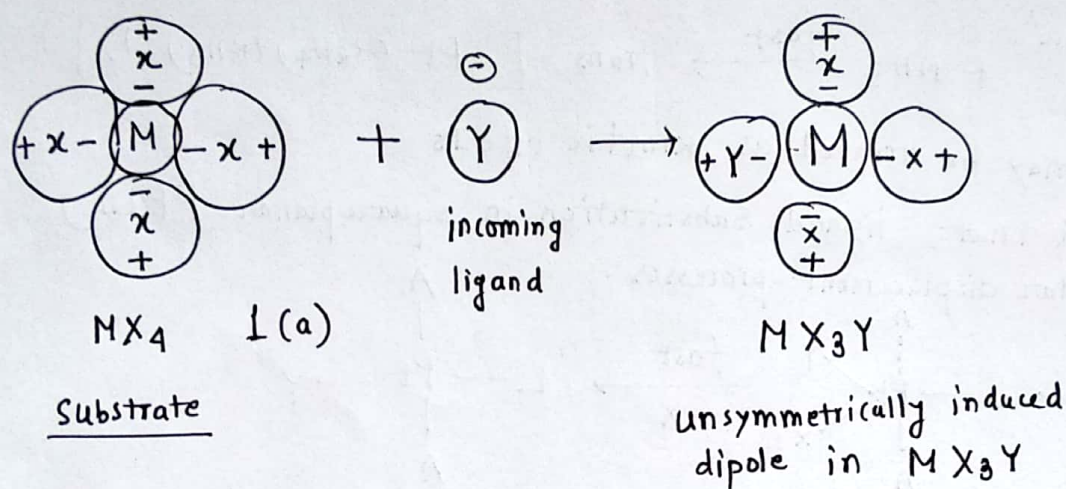 +
x
-
+ x -
M
- x +
-
x
+
+
⊖
Y
incoming
ligand
→
+
x
-
+ Y -
M
- x +
-
x
+
MX₄
1(a)
MX₃Y
Substrate
unsymmetrically induced
dipole in MX₃Y